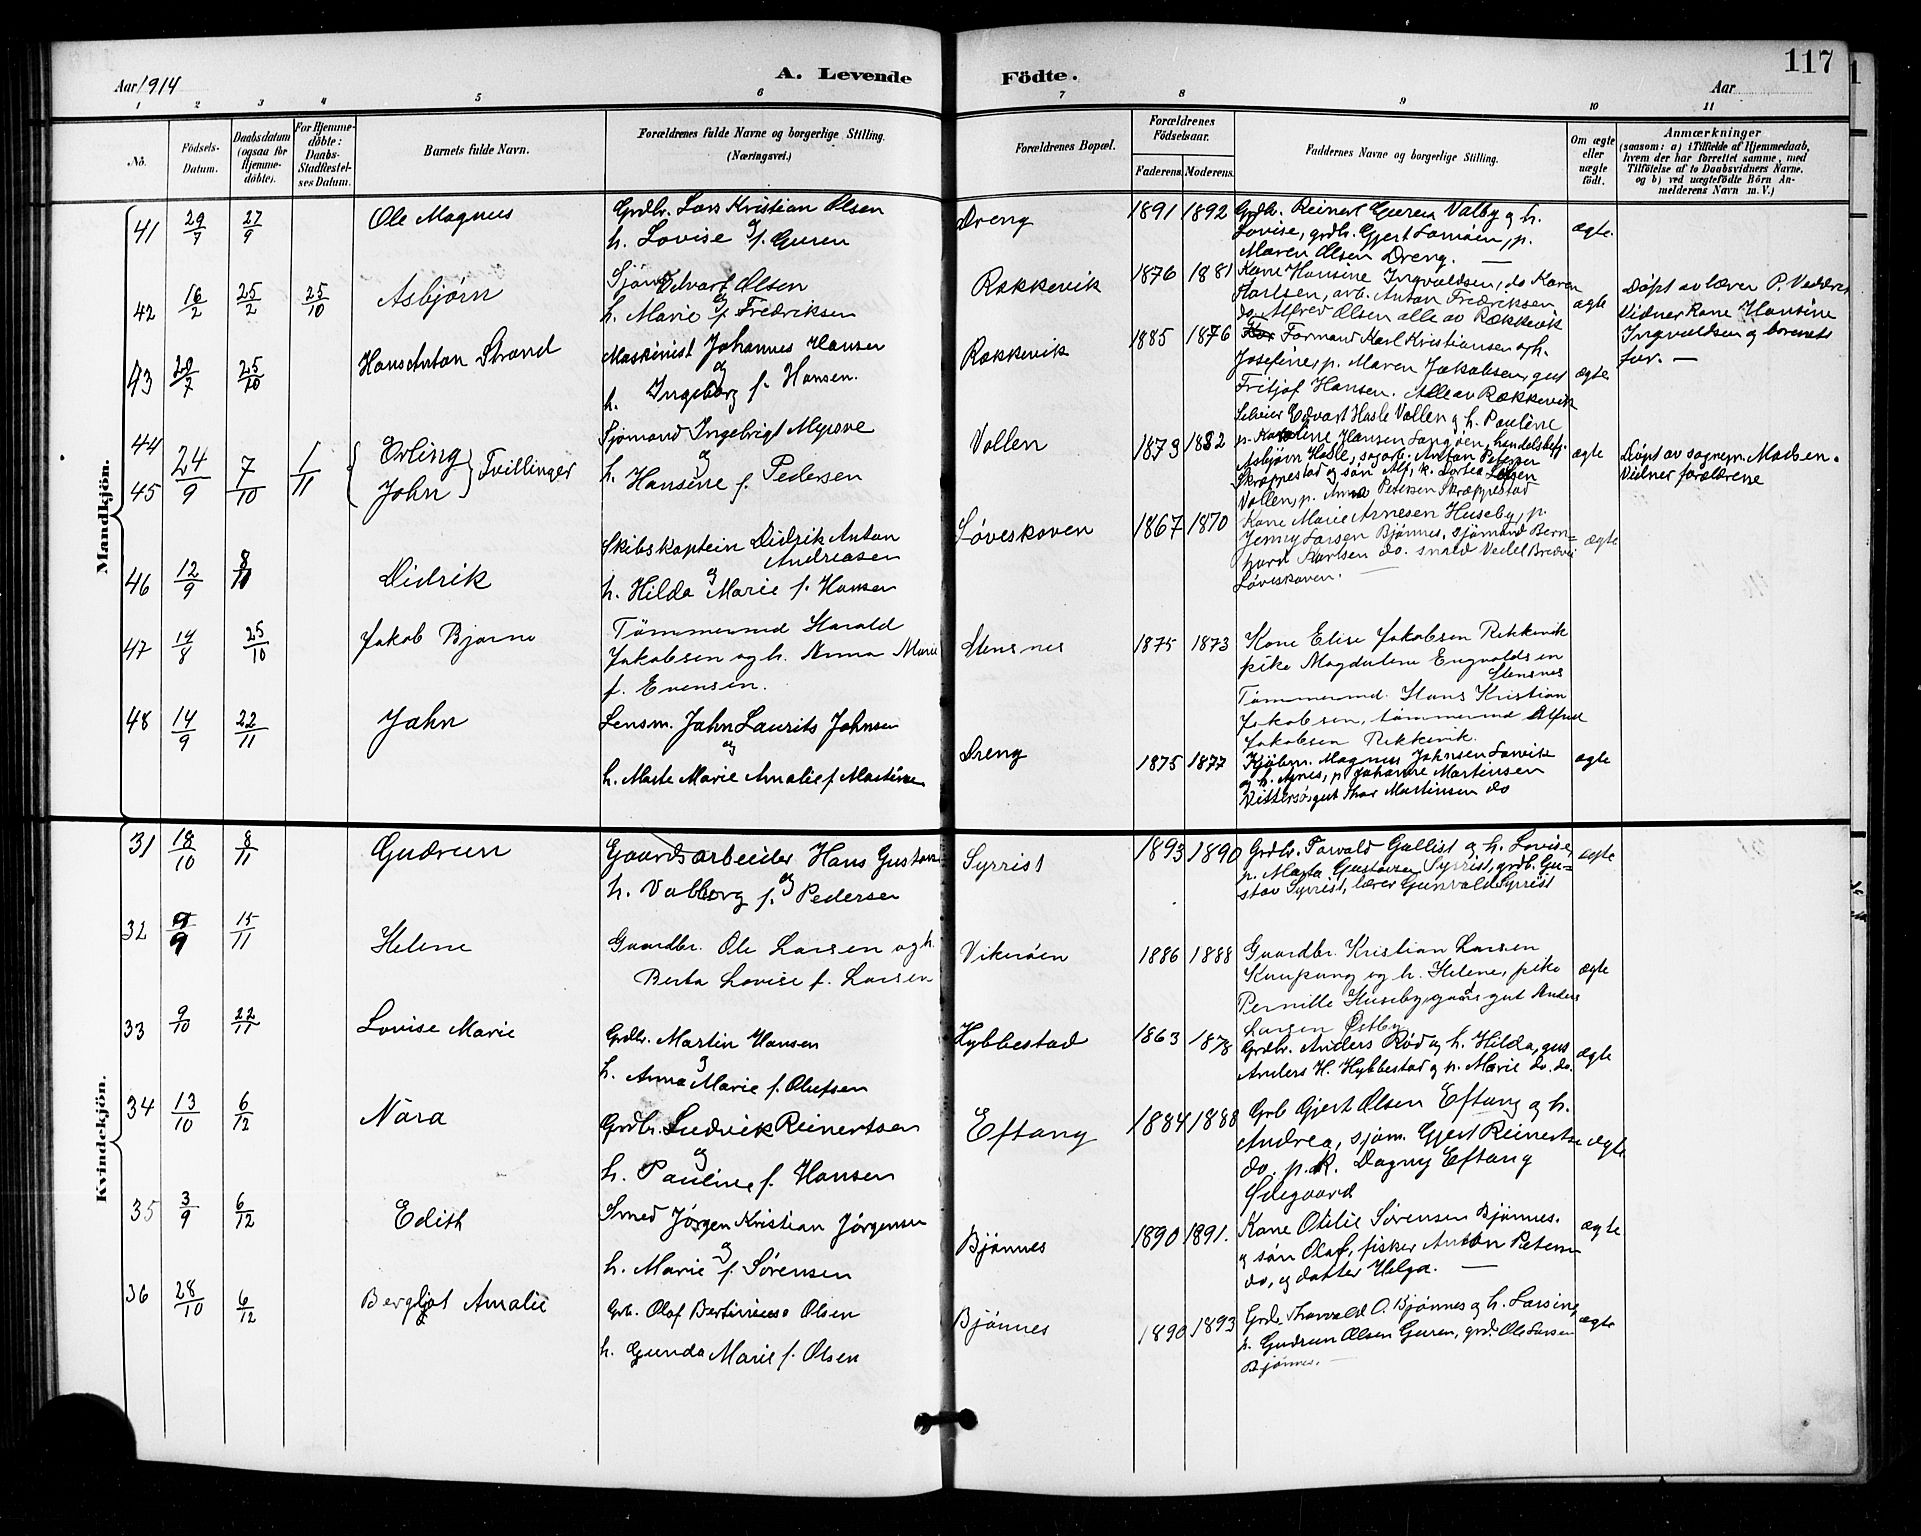 117
Aar 1914
A. Levende
Födte.
Aar
1 2 3 4 5 6 7 8 9 10 11
No.
Födsels-Datum.
Daabsdatum (ogsaa for Hjemmedöbte).
For Hjemmedöbte: Daabs-Stadfæstelses Datum.
Barnets fulde Navn.
Forældrenes fulde Navne og borgerlige Stilling.
(Næringsvei.)
Forældrenes Bopæl.
Forældrenes Födselsaar.
Faderens. Moderens.
Faddernes Navne og borgerlige Stilling.
Om ægte eller uægte født.
Anmærkninger
(saasom: a) i Tilfælde af Hjemmedaab,
hvem der har forrettet samme, med
Tilföielse af to Daabsvidners Navne.
og b) ved uægtefödte Börn Anmelderens Navn m. V.)
Mandkjön.
41 29/7 27/9 Ole Magnus
Grdbr. Lars Kristian Olsen
og
h. Lovise f. Guren
Dreng 1891 1892
Grdbr. Reinert Guren Valby og h.
Lovise, grdb. Gjert Lamøen, p.
Maren Olsen Dreng. —
ægte.
42 16/2 25/2 25/10 Asbjørn
Sjöm. Edvart Olsen
og
h. Marie f. Fredriksen
Rækkevik 1876 1881
Kone Hansine Ingvaldsen, do Karen
Karlsen, arb. Anton Fredriksen
do Alfred Olsen alle av Rækkevik
ægte
Døpt av lærer P. Vedderet
Vidner Kone Hansine
Ingvaldsen og barnets
far. —
43 29/7 25/10 Hans Anton Strand
Maskinist Johannes Hansen
og
h. Ingeborg f. Hansen.
Rækkevik 1885 1876
Formand Karl Kristiansen og h.
Josefine, p. Maren Jakobsen, gut
Fritjof Hansen. Alle av Rækkevik
ægte
44
45 24/9 7/10 1/11 Erling
John } Tvillinger
Sjømand Ingebrigt Myrove
og
h. Hansine f. Pedersen
Vollen 1879 1882
Selveier Edvart Hasle Vollen og h. Pauline
p. Karoline Hansen Langøen, handelsbetj.
Asbjørn Hasle, sagarb. Anton Petersen
Skræppestad og søn Alf, k. Dortea
Vollen, p. Anna Petersen Skræppestad
ægte
Døpt av sognepr. Madsen.
Vidner forældrene
46 12/9 8/11 Didrik
Skibskaptein Didrik Anton
Andreasen
og
h. Hilda Marie f. Hansen
Løveskoven 1867 1870
Kone Marie Arnesen Huseby, p.
Jenny Larsen Bjønnes, sjømand Bern=
hard Karlsen do. smed Vedel Bredvei
Løveskoven. —
ægte
47 14/8 25/10 Jakob Bjarne
Tømmermd Harald
Jakobsen og h. Anna Marie
f. Evensen.
Stensnes 1875 1873
Kone Elise Jakobsen Rekkevik
pike Magdalene Engvoldsen
Stensnes
Tømmermd. Hans Kristian
Jakobsen, tømmermd Alfred
Jakobsen Rekkevik.
48 14/9 22/11 Jahn
Lensm. Jahn Laurits Johnsen
og
h. Marte Marie Amalie f. Martinsen
Dreng 1875 1877
Kjøbm. Magnus Johnsen Larvik
og h. Agnes, p. Johanne Martinsen
Vittersø, gut Thor Martinsen do
ægte
Kvindekjön.
31 18/10 8/11 Gudrun
Gaardsarbeider Hans Gustavsen
og
h. Valborg f. Pedersen
Syrrist 1893 1890
Grdbr. Torvald Gallist og h. Lovise,
p. Marta Gustavsen Syrrist, grdb. Gu=
stav Syrrist, lærer Gunvald Syrrist
ægte
32 9/9 15/11 Helene
Gaardbr. Ole Larsen og h.
Berta Lovise f. Larsen
Vikerøen 1886 1888
Gaardbr. Kristian Larsen
Kaupang og h. Helene, pike
Pernille Huseby, gaardgut Anders
Larsen Østby
ægte
33 9/10 22/11 Lovise Marie
Grdbr. Martin Hansen
og
h. Anna Marie f. Olufsen
Hybbestad 1863 1878
Grdbr. Anders Rød og h. Hilda, gut
Anders H. Hybbestad og p. Marie do. do.
ægte
34 13/10 6/12 Nora
Grdbr. Ludvik Reinertsen
og
h. Pauline f. Hansen
Eftang 1884 1888
Grb Gjert Olsen Eftang og h.
Andrea, sjøm. Gjert Reinertsen
do. p. R. Dagny Eftang
Ødegaard
ægte
35 3/9 6/12 Edith
Smed Jørgen Kristian Jørgensen
og
h. Marie f. Sørensen
Bjönnes 1890 1891.
Kone Otilie Sørensen Bjønnes.
og søn Olaf, fisker Anton Petersen
do, og datter Helga. —
ægte
36 28/10 6/12 Bergljot Amalie
Grb. Olaf Bertinius Olsen
h. Gunda Marie f. Olsen
Bjönnes 1890 1893
Grdb. Thorvald O. Bjønnes og h. Larsine,
h. Gudrun Olsen Guren, grd. Ole Larsen
Bjønnes. —
ægte